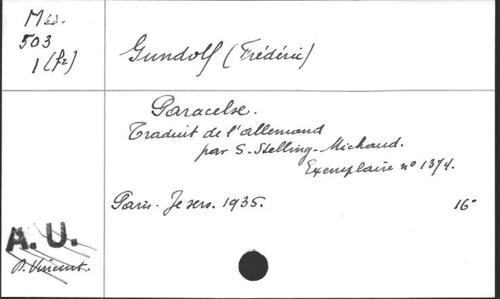 Méd.
503
1 (fr)
Gundolf (Frédéric)
Paracelse.
Traduit de l'allemand
par S. Stelling-Michaud.
Exemplaire nº 1374.
Paris. Je sers. 1935. 16º
A. U.
P. Vincent.